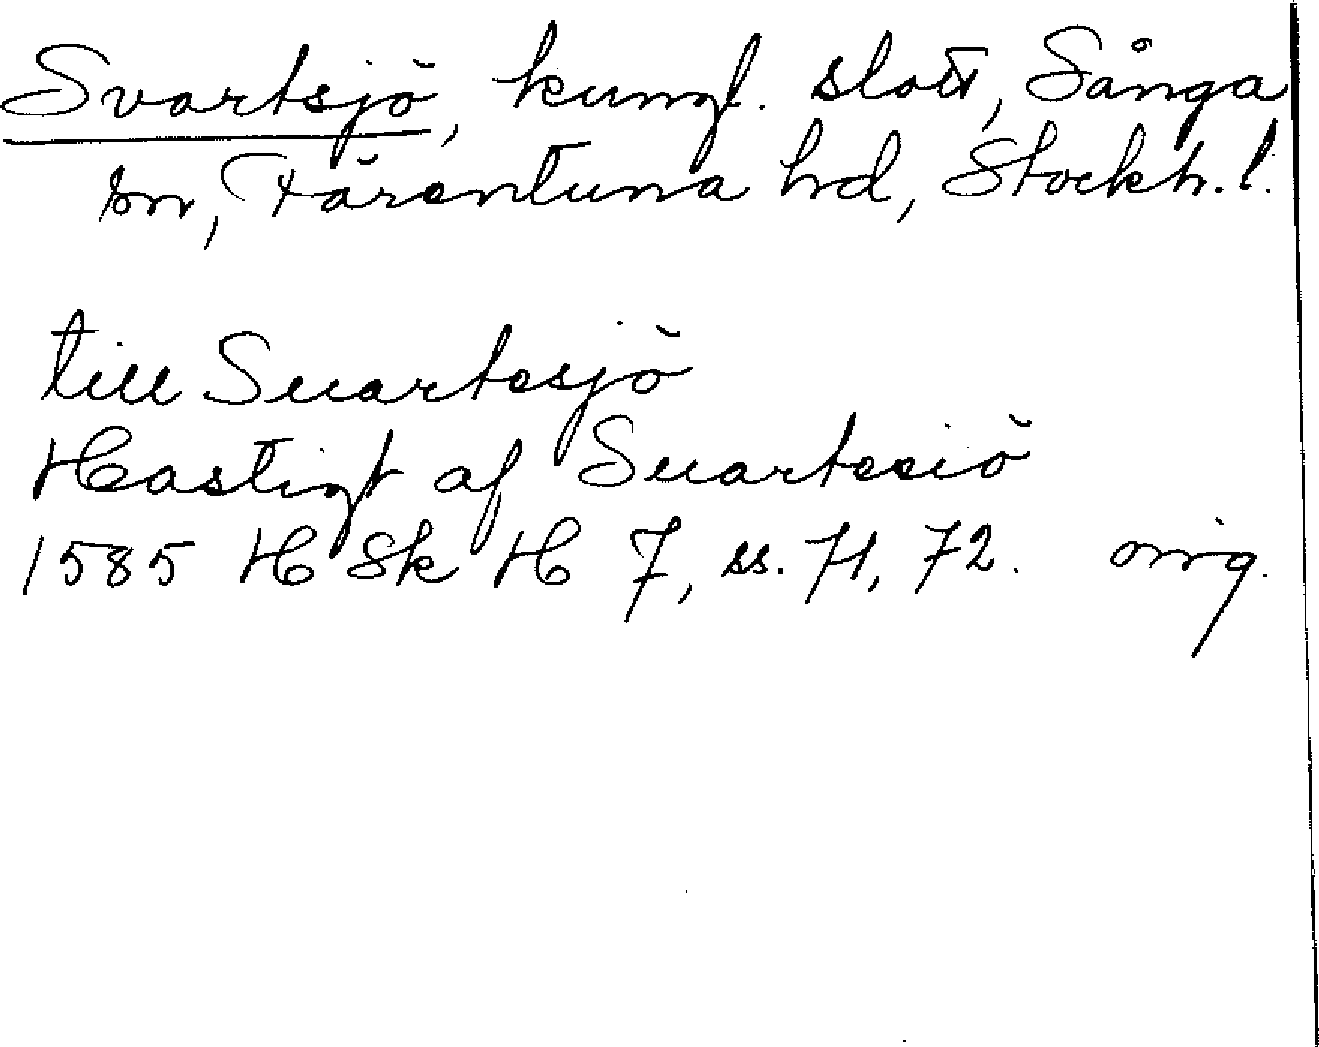 Svartsjö, kungl. slott, Sånga
sn, Färentuna hd, Stockh. l.
till Suartesjö
Hastigt af Suartesiö
1585 H Sk H 7, ss. 71, 72. orig.